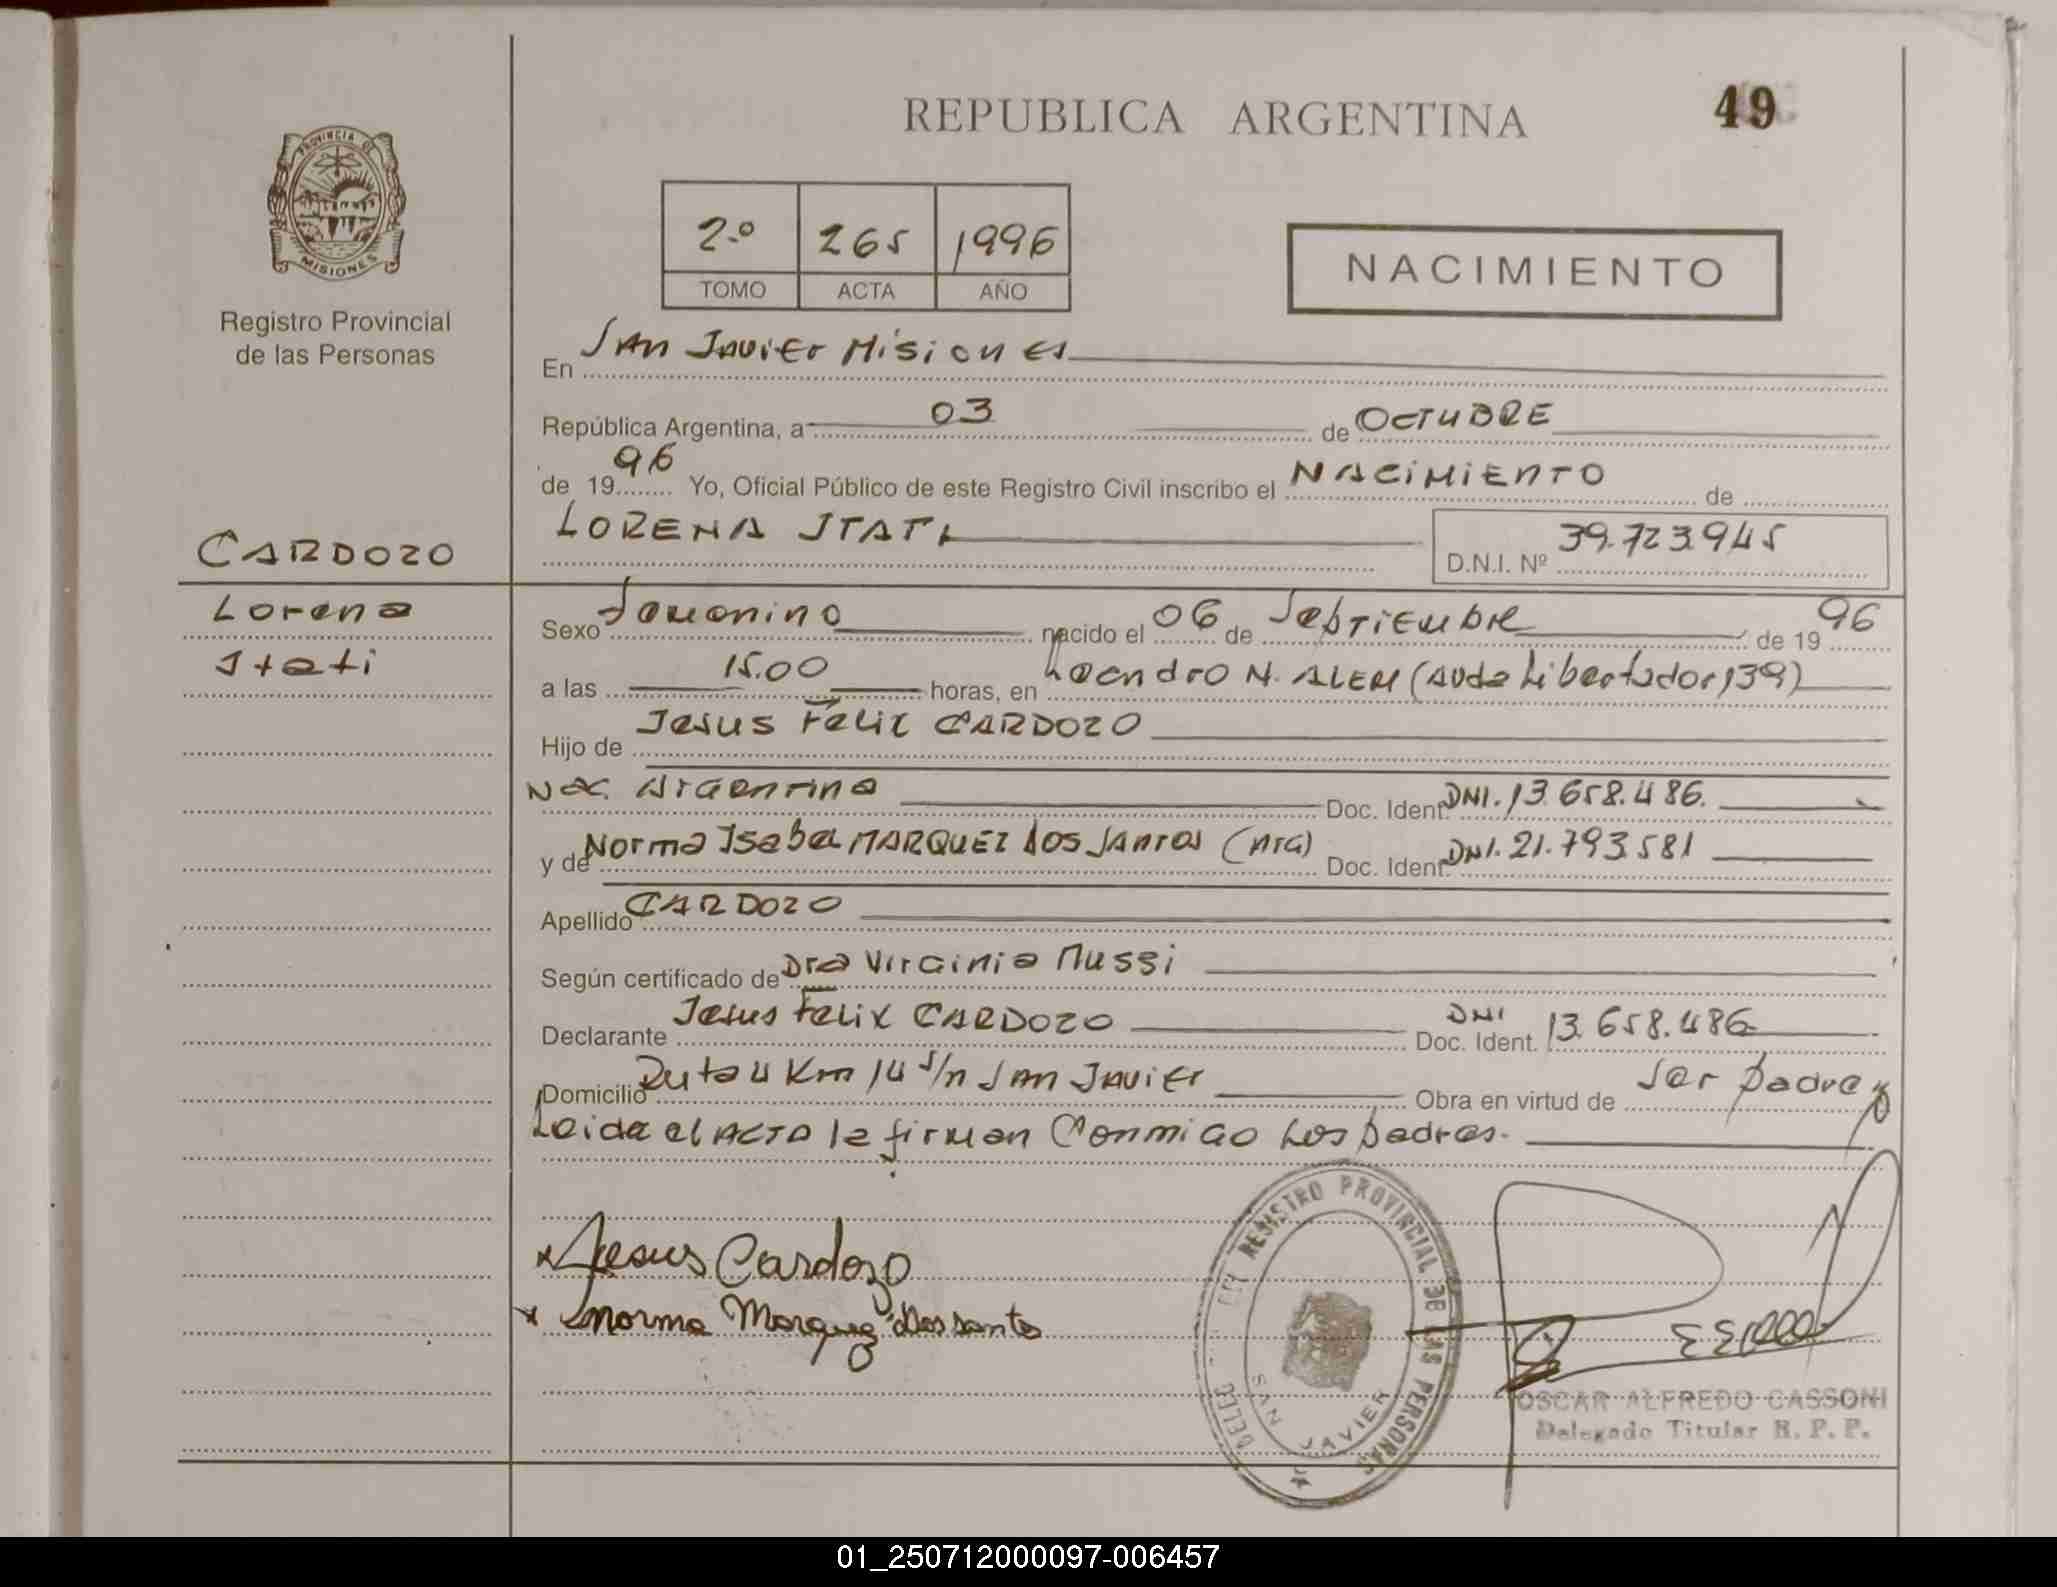 REPUBLICA ARGENTINA
49
PROVINCIA DE
MISIONES
Registro Provincial
de las Personas
2.º 265 1996
TOMO ACTA AÑO
NACIMIENTO
En San Javier Misiones
República Argentina, a 03 de OCTUBRE
de 1996 Yo, Oficial Público de este Registro Civil inscribo el NACIMIENTO de
LORENA ITATI
D.N.I. Nº 39.723.945
CARDOZO
Lorena
Itati
Sexo Femenino nacido el 06 de Septiembre de 1996
a las 15.00 horas, en Leandro N. ALEM (Avda Libertador 139)
Hijo de Jesus Felix CARDOZO
Nac. Argentina Doc. Ident. DNI. 13.658.486.
y de Norma Isabel MARQUEZ dos Santos (Arg) Doc. Ident. DNI. 21.793.581
Apellido CARDOZO
Según certificado de Dra Virginia Mussi
Declarante Jesus Felix CARDOZO Doc. Ident. DNI 13.658.486
Domicilio Ruta 4 Km 14 s/n San Javier Obra en virtud de Ser padre y
Leida el ACTA la firman Conmigo Los padres.
Jesus Cardozo
Norma Marquez Dos Santo
REGISTRO PROVINCIAL DE LAS PERSONAS
SAN JAVIER
OSCAR ALFREDO CASSONI
Delegado Titular R. P. P.
01_250712000097-006457